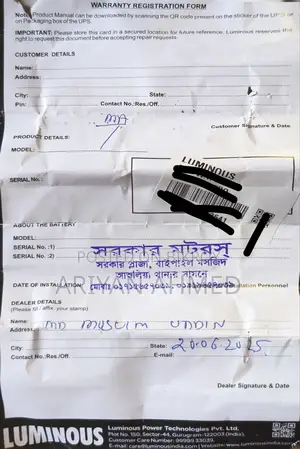 WARRANTY REGISTRATION FORM
Note: Product Manual can be downloaded by scanning the QR code present on the sticker of the UPS or on Packaging box of the UPS.
IMPORTANT: Please store this card in a secured location for future reference. Luminous reserves the right to request this document before accepting repair requests.
CUSTOMER DETAILS
Name:
Address:
City: State:
Pin: Contact No.:Res./Off.
Customer Signature & Date
PRODUCT DETAILS:
MODEL:
LUMINOUS
SERIAL No.:
ABOUT THE BATTERY
MODEL:
SERIAL No.:1)
SERIAL No.:2)
সরকার মটরস্
সরকার প্লাজা, বাইপাইল মসজিদ
আশুলিয়া থানার সামনে
ARIYAN AHMED
DATE OF INSTALLATION:
DEALER DETAILS
(Please fill/ affix, your stamp)
Name: MD MUSLIM UDDIN
Address:
City: State: 20.06.2025.
Contact No.:Res./Off. E-mail:
Dealer Signature & Date
LUMINOUS
Luminous Power Technologies Pvt. Ltd.
Plot No. 150, Sector-44, Gurugram-122003 (India).
Customer Care Number: 9999933039.
E-mail: care@luminousindia.com